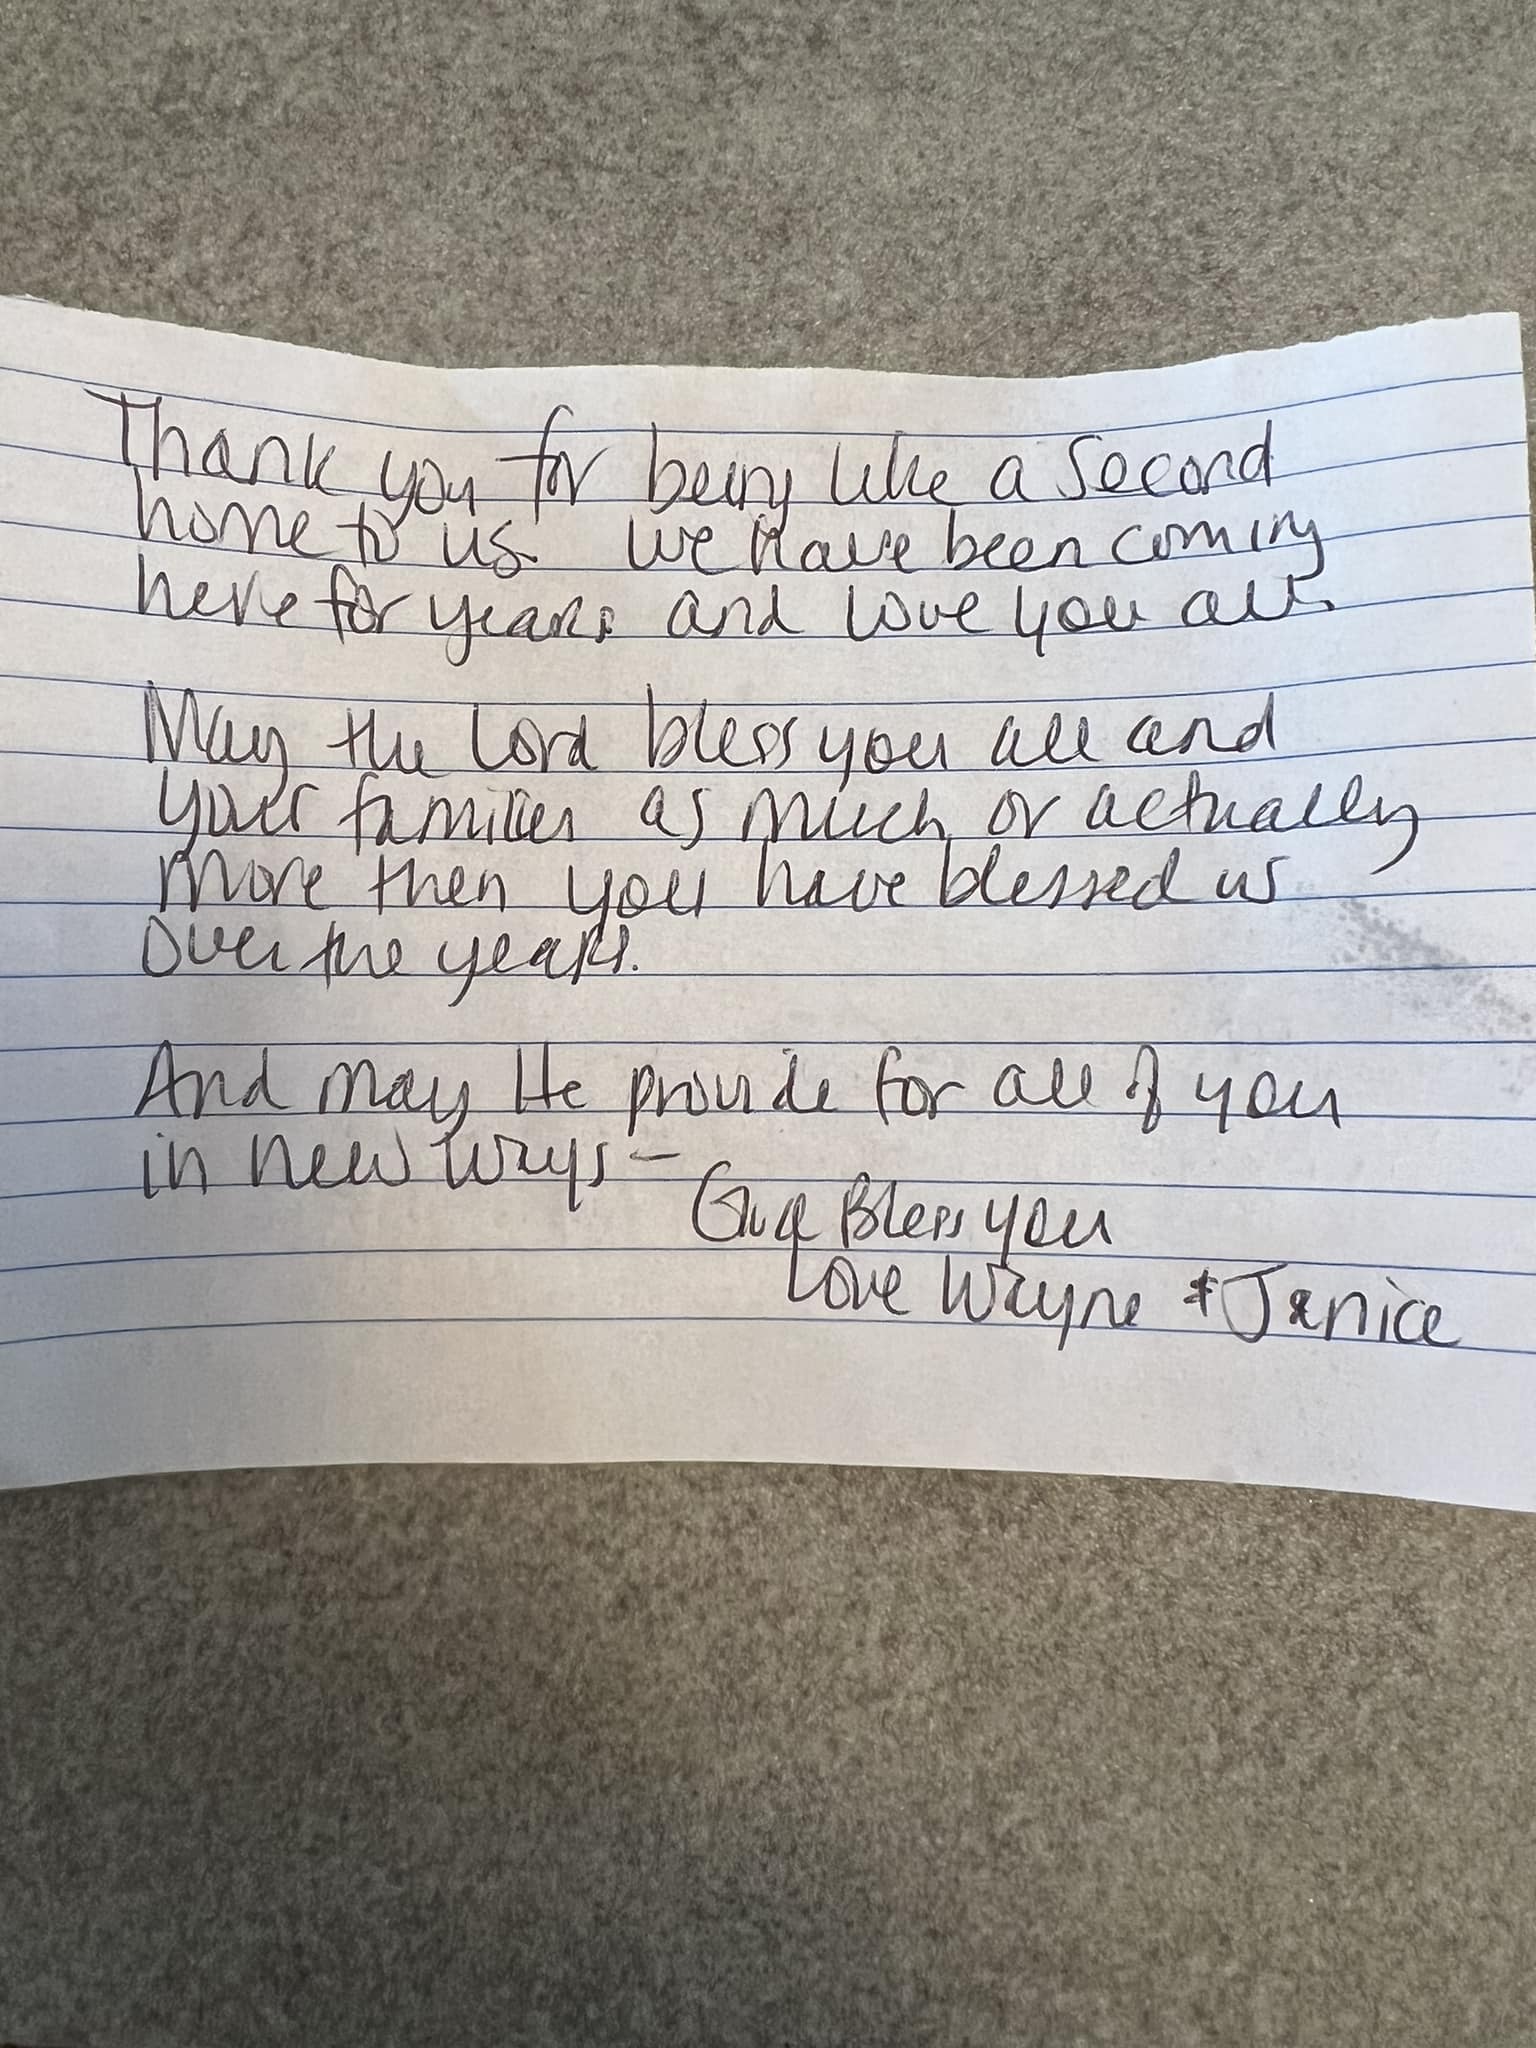 Thank you for being like a second
home to us. We have been coming
here for years and love you all.
May the Lord bless you all and
your families as much or actually
more then you have blessed us
over the years.
And may He provide for all of you
in new ways -
God Bless you
Love Wayne & Janice